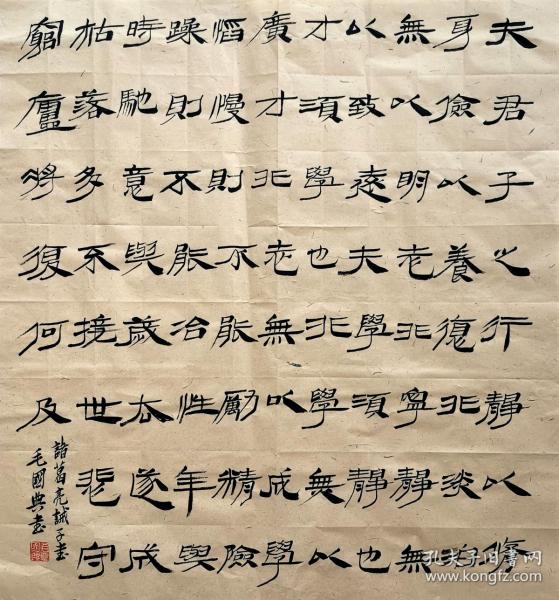 夫君子之行靜以修
身儉以養德非淡泊
無以明志非寧靜無
以致遠夫學須靜也
才須學也非學無以
廣才非志無以成學
慆慢則不能勵精險
躁則不能冶性年與
時馳意與歲去遂成
枯落多不接世悲守
窮廬將復何及
諸葛亮誡子書
毛國典書
孔夫子旧书网
www.kongfz.com